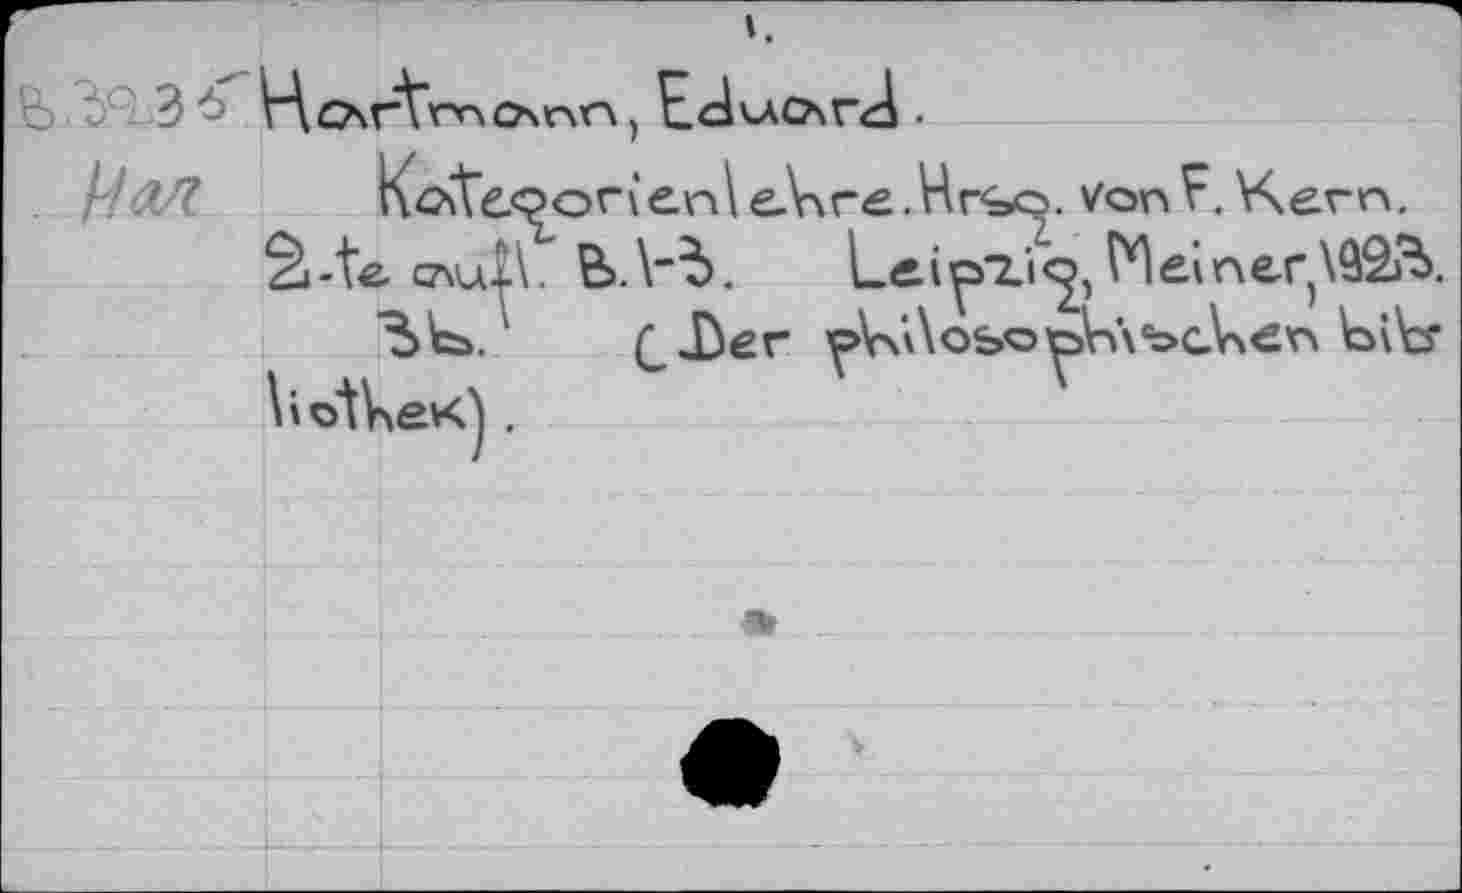 1.
В.3923б Hartmann, Eduard.
Нал Kategorienlehre. Hrsg. von F. Kern.
2-te aufl. B. 1-3. Leipzig, Meiner, 1923.
3 b. (Der philosophischen bib-
liothek).